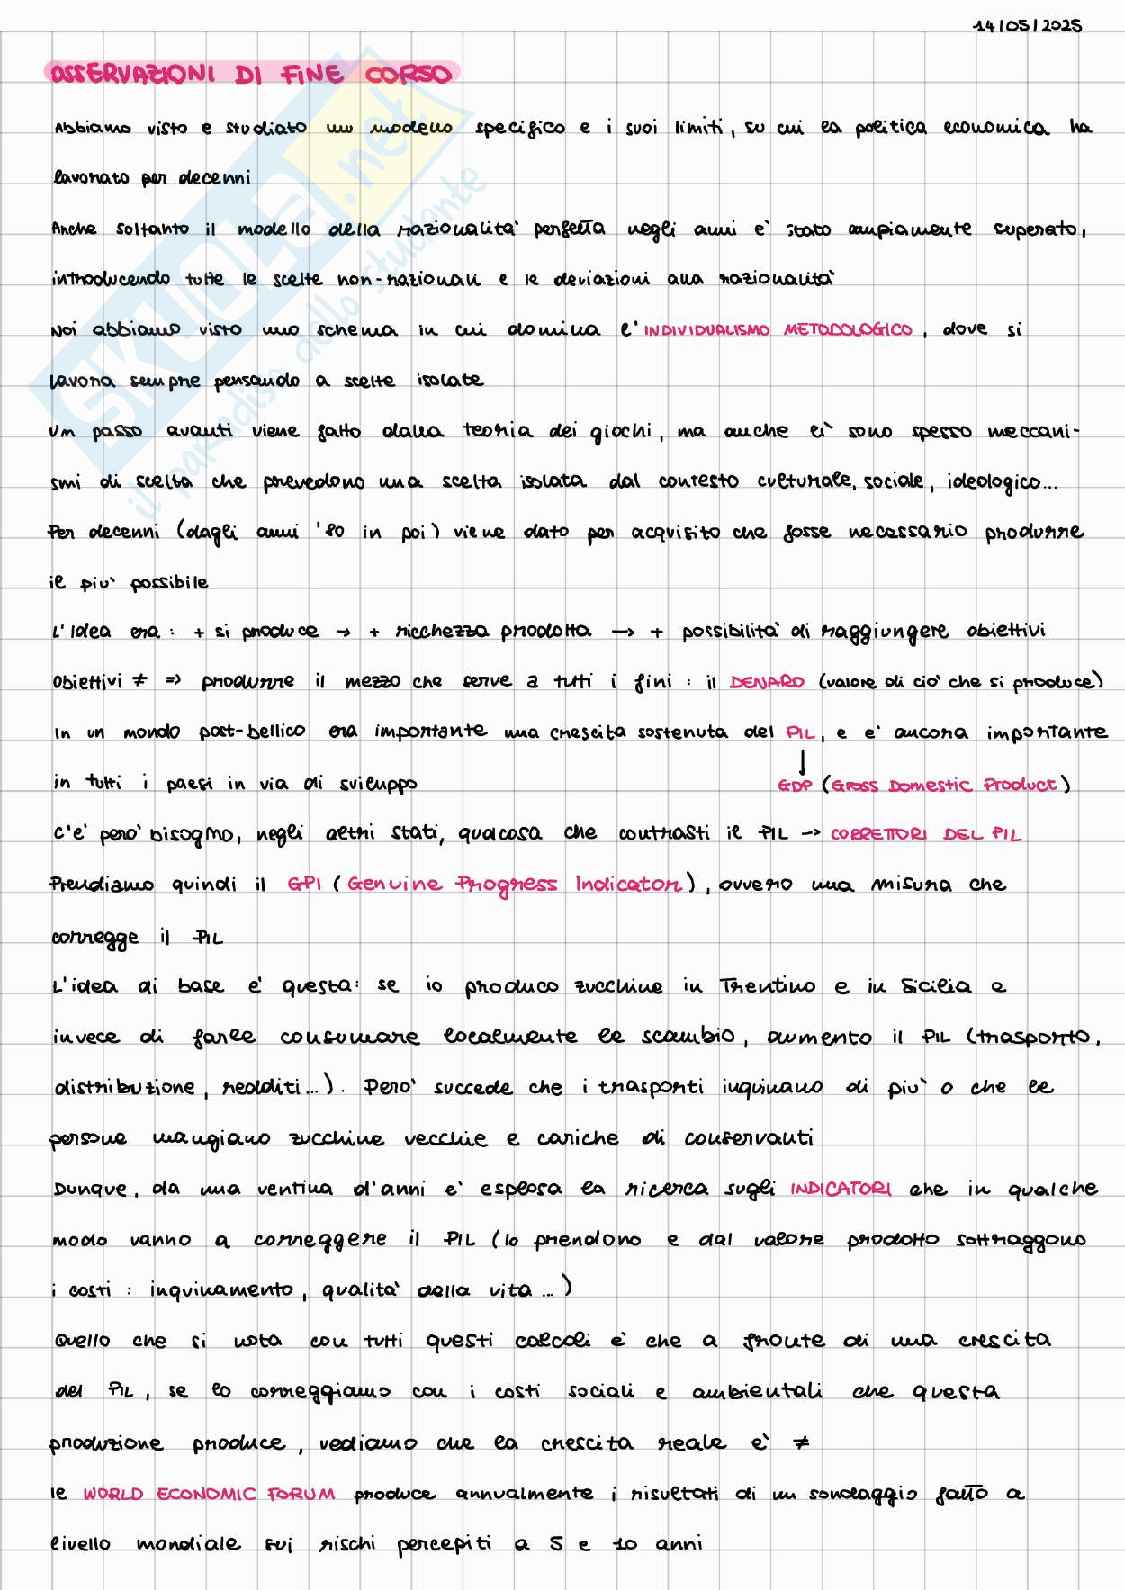 14/05/2025
OSSERVAZIONI DI FINE CORSO
Abbiamo visto e studiato un modello specifico e i suoi limiti, su cui la politica economica ha
lavorato per decenni
Anche soltanto il modello della razionalità perfetta negli anni è stato ampiamente superato,
introducendo tutte le scelte non-razionali e le deviazioni alla razionalità
Noi abbiamo visto uno schema in cui domina l'INDIVIDUALISMO METODOLOGICO, dove si
lavora sempre pensando a scelte isolate
Un passo avanti viene fatto dalla teoria dei giochi, ma anche lì sono spesso meccani-
smi di scelta che prevedono una scelta isolata dal contesto culturale, sociale, ideologico...
Per decenni (dagli anni '80 in poi) viene dato per acquisito che fosse necessario produrre
il più possibile
L'idea era: + si produce → + ricchezza prodotta → + possibilità di raggiungere obiettivi
Obiettivi ≠ => produrre il mezzo che serve a tutti i fini: il DENARO (valore di ciò che si produce)
In un mondo post-bellico era importante una crescita sostenuta del PIL, e è ancora importante
in tutti i paesi in via di sviluppo ↓ GDP (Gross Domestic Product)
C'è però bisogno, negli altri stati, qualcosa che contrasti il PIL → CORRETTORI DEL PIL
Prendiamo quindi il GPI (Genuine Progress Indicator), ovvero una misura che
corregge il PIL
L'idea di base è questa: se io produco zucchine in Trentino e in Sicilia e
invece di farle consumare localmente le scambio, aumento il PIL (trasporto,
distribuzione, redditi...). Però succede che i trasporti inquinano di più o che le
persone mangiano zucchine vecchie e cariche di conservanti
Dunque, da una ventina d'anni è esplosa la ricerca sugli INDICATORI che in qualche
modo vanno a correggere il PIL (lo prendono e dal valore prodotto sottraggono
i costi: inquinamento, qualità della vita...)
Quello che si nota con tutti questi calcoli è che a fronte di una crescita
del PIL, se lo correggiamo con i costi sociali e ambientali che questa
produzione produce, vediamo che la crescita reale è ≠
le WORLD ECONOMIC FORUM produce annualmente i risultati di un sondaggio fatto a
livello mondiale sui rischi percepiti a 5 e 10 anni
SKUOLA.net
il paradiso dello studente